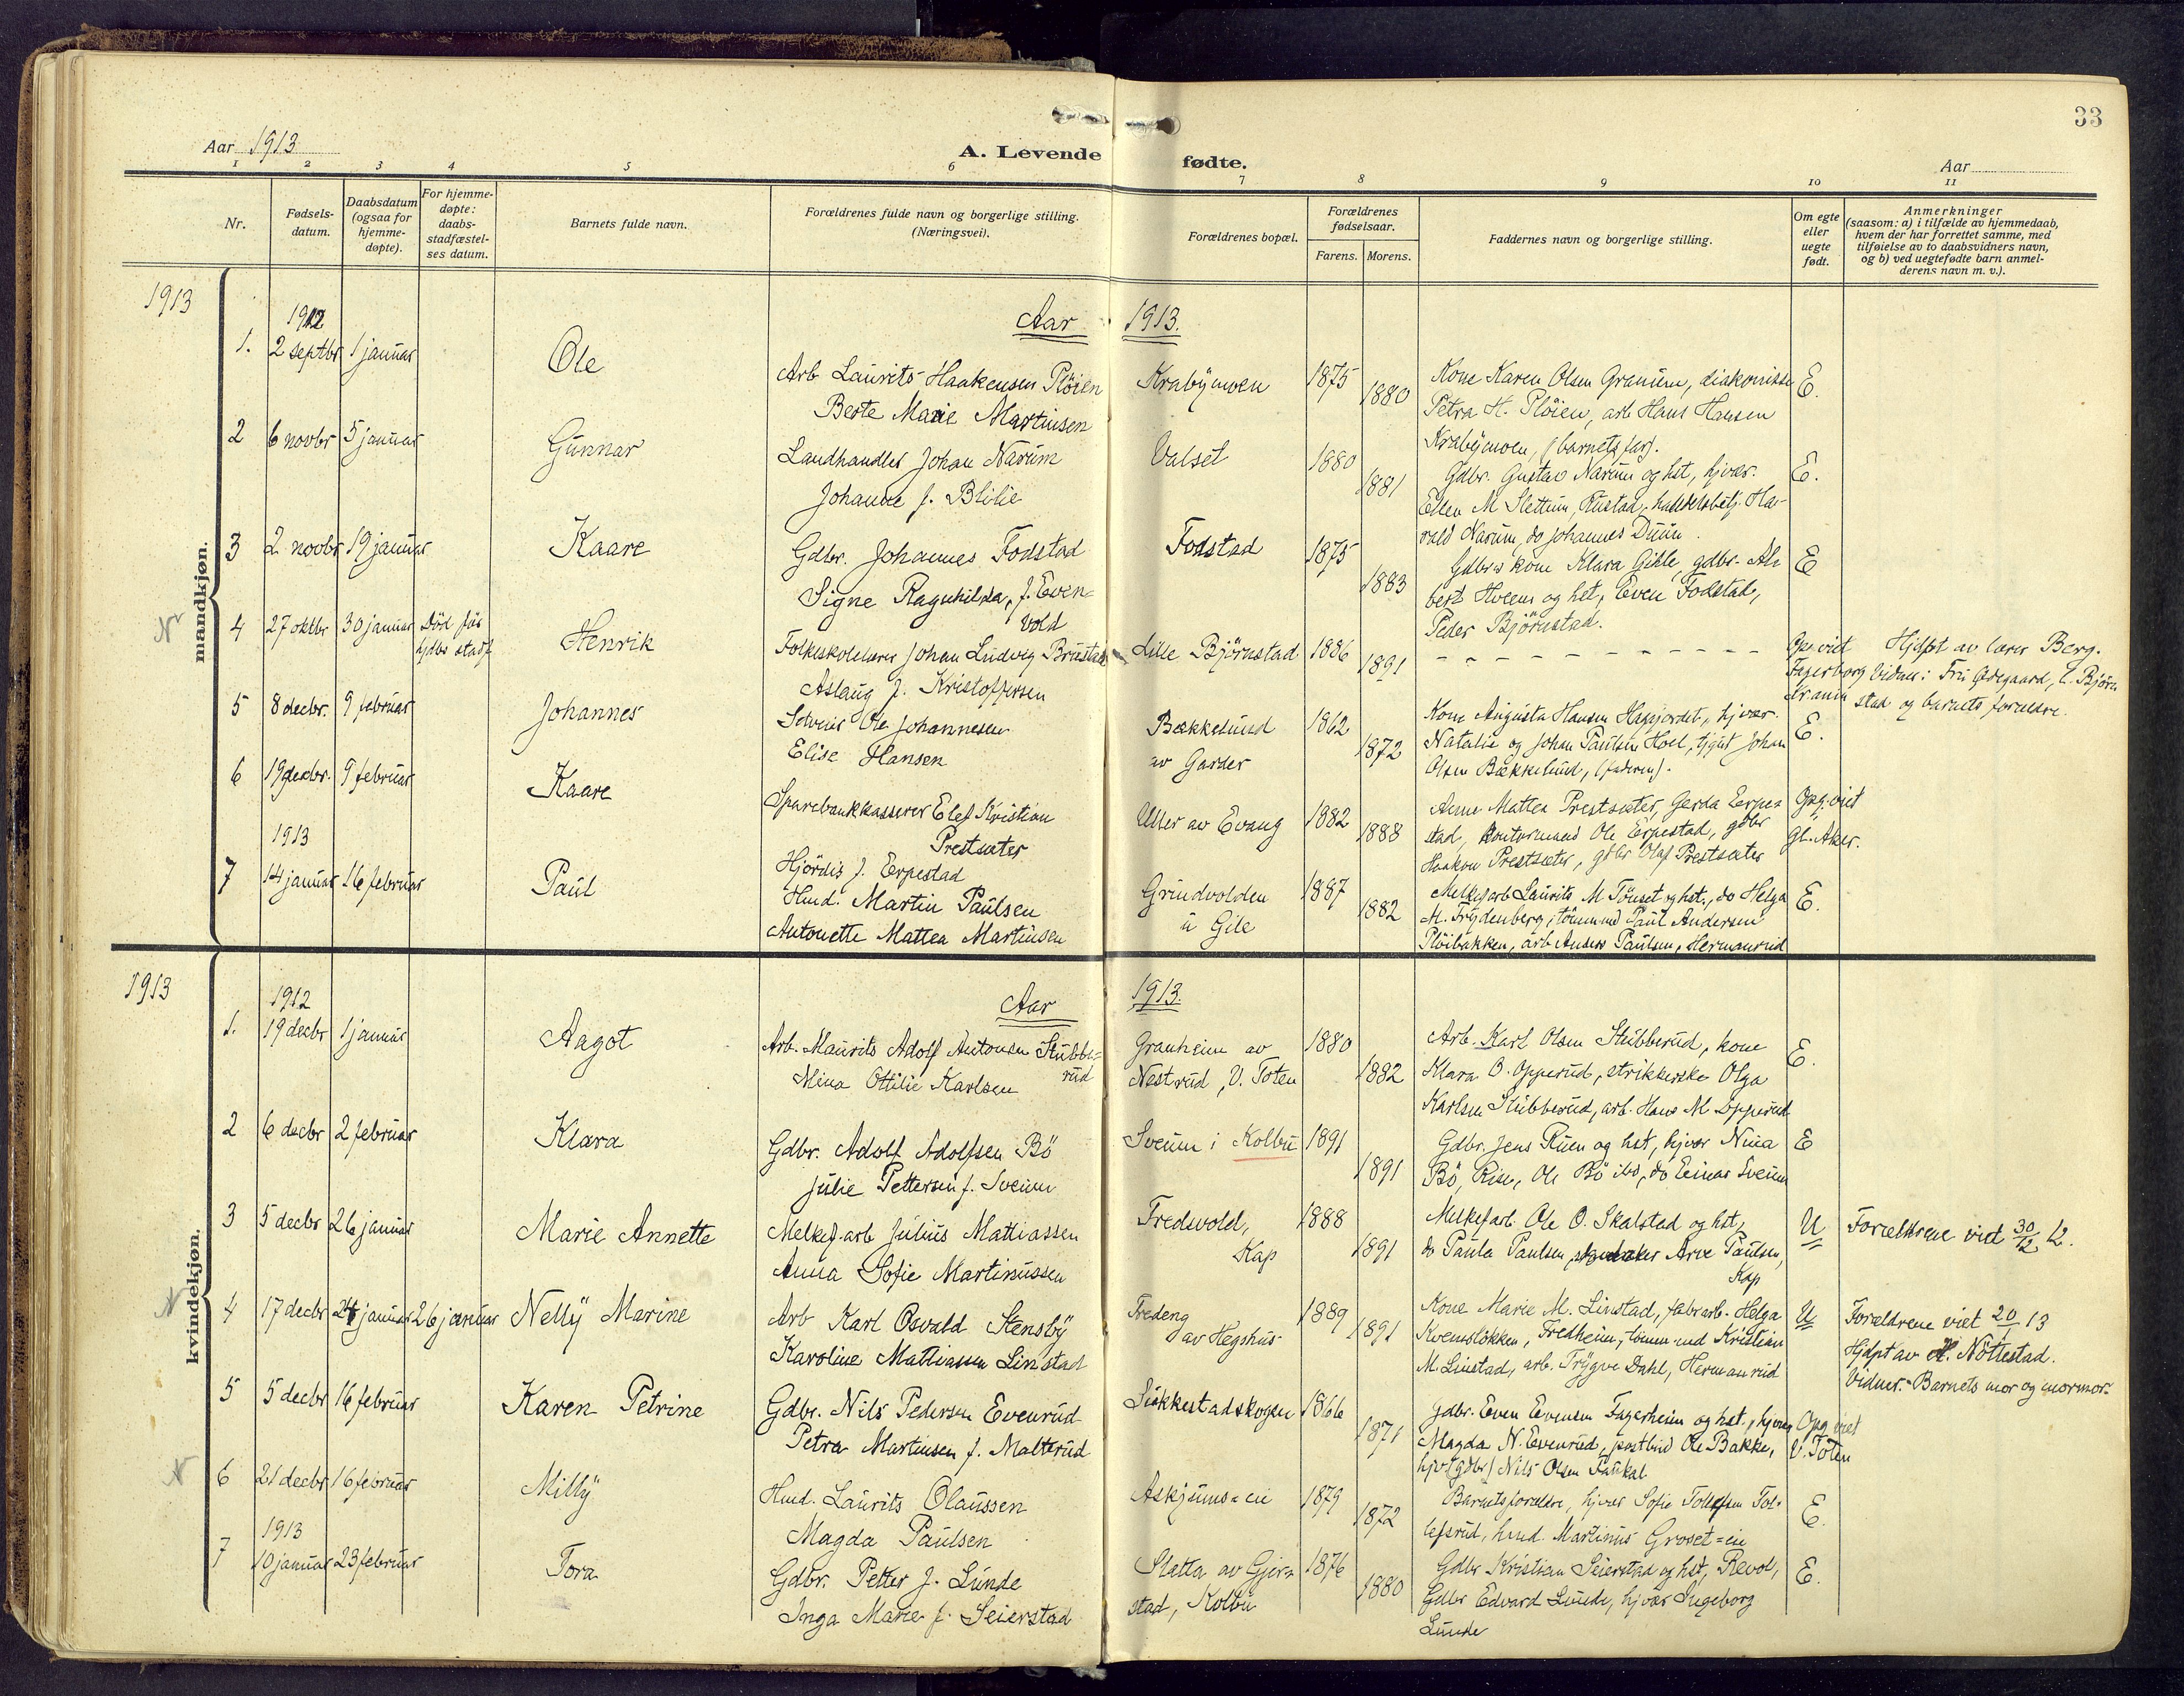 33
Aar 1913
A. Levende fødte.
Aar
1 2 3 4 5 6 7 8 9 10 11
Nr.
Fødsels-
datum.
Daabsdatum
(ogsaa for
hjemme-
døpte).
For hjemme-
døpte:
daabs-
stadfæstel-
ses datum.
Barnets fulde navn.
Forældrenes fulde navn og borgerlige stilling.
(Næringsvei).
Forældrenes bopæl.
Forældrenes
fødselsaar.
Farens. Morens.
Faddernes navn og borgerlige stilling.
Om egte
eller
uegte
født.
Anmerkninger
(saasom: a) i tilfælde av hjemmedaab,
hvem der har forrettet samme, med
tilføielse av to daabsvidners navn,
og b) ved uegtefødte barn anmel-
derens navn m. v.).
1913
mandkjøn.
Aar 1913.
1912
1. 2 septbr 1 januar Ole
Arb Laurits Haakensen Plöien
Berte Marie Martinsen
Krabymoen 1875 1880
Kone Karen Olsen Granum, diakonisse
Petra H. Plöien, arb Hans Hansen
Krabymoen, (barnets far).
E.
2 6 novbr 5 januar Gunnar
Landhandler Johan Narum
Johanne f. Blilie
Valset 1880 1881
Gdbr. Gustav Narum og hst, hjvær.
Ellen M Slettum, Rustad, handelsbetj. Ha-
rald Narum, do Johannes Duun.
E.
3 2 novbr 19 januar Kaare
Gdbr. Johannes Fodstad
Signe Ragnhilda, f. Even-
vold
Fodstad 1875 1883
Gdbrs kone Klara Gihle, gdbr. Al-
bert Hveem og hst, Even Fodstad,
Peder Björnstad.
E
N
4 27 oktbr 30 januar Död för
hjdbs stadf
Henrik
Folkeskolelærer Johan Ludvig Brustad
Aslaug f. Kristoffersen
Lille Björnstad 1886 1891
- - - - - - - - - - -
Opg. viet
Fagerborg
Hjdpt av lærer Berg.
Vidner: Fru Ödegaard, l. Björn
stad og barnets forældre.
5 8 decbr. 9 februar Johannes
Selveier Ole Johannesen
Elise Hansen
Bækkelund
av Garder
1862 1872
Kone Augusta Hansen Hagejordet, hjvær.
Natalie og Johan Paulsen Hoel, tjgut Johan
Olsen Bækkelund, (faderen).
E.
6 19 decbr. 9 februar Kaare
Sparebankkasserer Elef Kristian
Prestsæter
Hjördis f. Erpestad
Uller av Evang 1882 1888
Anne Mattea Prestsæter, Gerda Erpe-
stad, kontormand Ole Erpestad, gdbr
Haakon Prestsæter, gdbr Olaf Prestsæter
Opg. viet
Gl. Aker.
1913
7 14 januar 16 februar Paul
Hmd. Martin Paulsen
Antonette Mattea Martinsen
Grindvolden
u Gile
1887 1882
Melkefarb Laurits M Tönset og hst., do Helga
M. Frydenberg, tömmmd Paul Andersen
Plöibakken, arb Anders Paulsen, Hermanrud
E.
1913
kvindekjøn.
Aar 1913.
1912
1. 19 decbr 1 januar Aagot
Arb. Maurits Adolf Antonsen Stubbe-
rud
Mina Ottilie Karlsen
Granheim av
Nestrud, V. Toten
1880 1882
Arb. Karl Olsen Stubberud, kone
Klara O. Opperud, strikkerske Olga
Karlsen Stubberud, arb. Hans M Opperud
E.
2 6 decbr 2 februar Klara
Gdbr. Adolf Adolfsen Bö
Julie Pettersen f. Sveum
Sveum i Kolbu 1891 1891
Gdbr. Jens Ruen og hst, hjvær Nina
Bö, Rise, Ole Bö ibd, do Einar Sveum
E
3 5 decbr 26 januar Marie Annette
Melkef.arb Julius Mattiassen
Anna Sofie Martinussen
Fredvold,
Kap
1888 1891
Melkefarb. Ole O. Skalstad og hst,
do Paula Paulsen, Arve Paulsen,
Kap
U
Forældrene viet 30/12 12.
N
4 17 decbr 24 januar 26 januar Nelly Marine
Arb Karl Osvald Stensby
Karoline Mattiassen Linstad
Fredeng
av Hegshus
1889 1891
Kone Marie M. Linstad, fabrarb. Helga
Kvemslökken, Fredheim, tömmmd Kristian
M. Linstad, arb. Trygve Dahl, Hermanrud
U
Forældrene viet 20/1 13
Hjdpt av M. Nöttestad.
Vidner: Barnets mor og mormor.
5 5 decbr 16 februar Karen Petrine
Gdbr. Nils Pedersen Evenrud
Petra Martinsen f. Malterud
Slökkestadskogen 1866 1871
Gdbr. Even Evensen Fagerheim og hst., hjvær
Magda N. Evenrud, postbud Ole Bakke,
hjv (gdbr) Nils Olsen Faukal
Opg. viet
V. Toten
N
6 21 decbr 16 februar Milly
Hmd. Laurits Olaussen
Magda Paulsen
Askjums-eie 1879 1872
Barnets forældre, hjvær Sofie Tollefsen Tol-
lefsrud, hmd. Martinus Groset-eie
E.
1913
7 10 januar 23 februar Tora
Gdbr. Petter J. Lunde
Inga Marie f. Seierstad
Sletta av Gjer-
stad, Kolbu
1876 1880
Gdbr Kristian Seierstad og hst, Revol,
Gdbr Edvard Lunde, hjvær Ingeborg
Lunde
E.